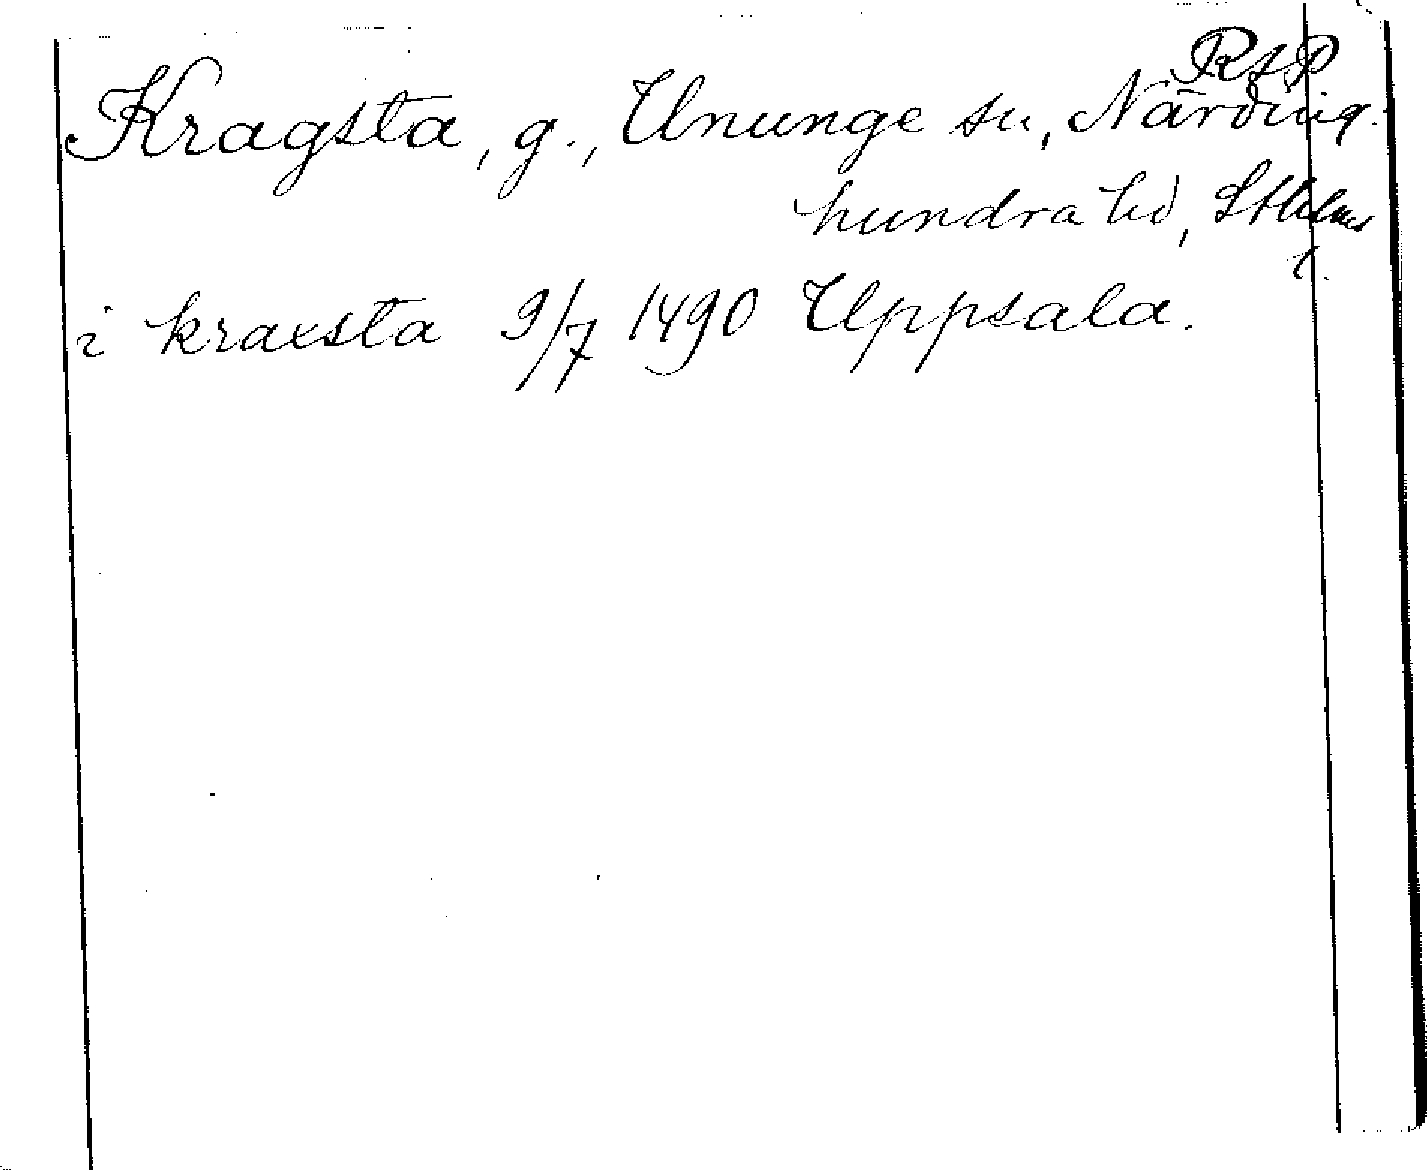 RAP
Kragsta, g., Ununge sn, Närding-
hundra hd, Sthlms
l.
i kraxsta 9/7 1490 Uppsala.